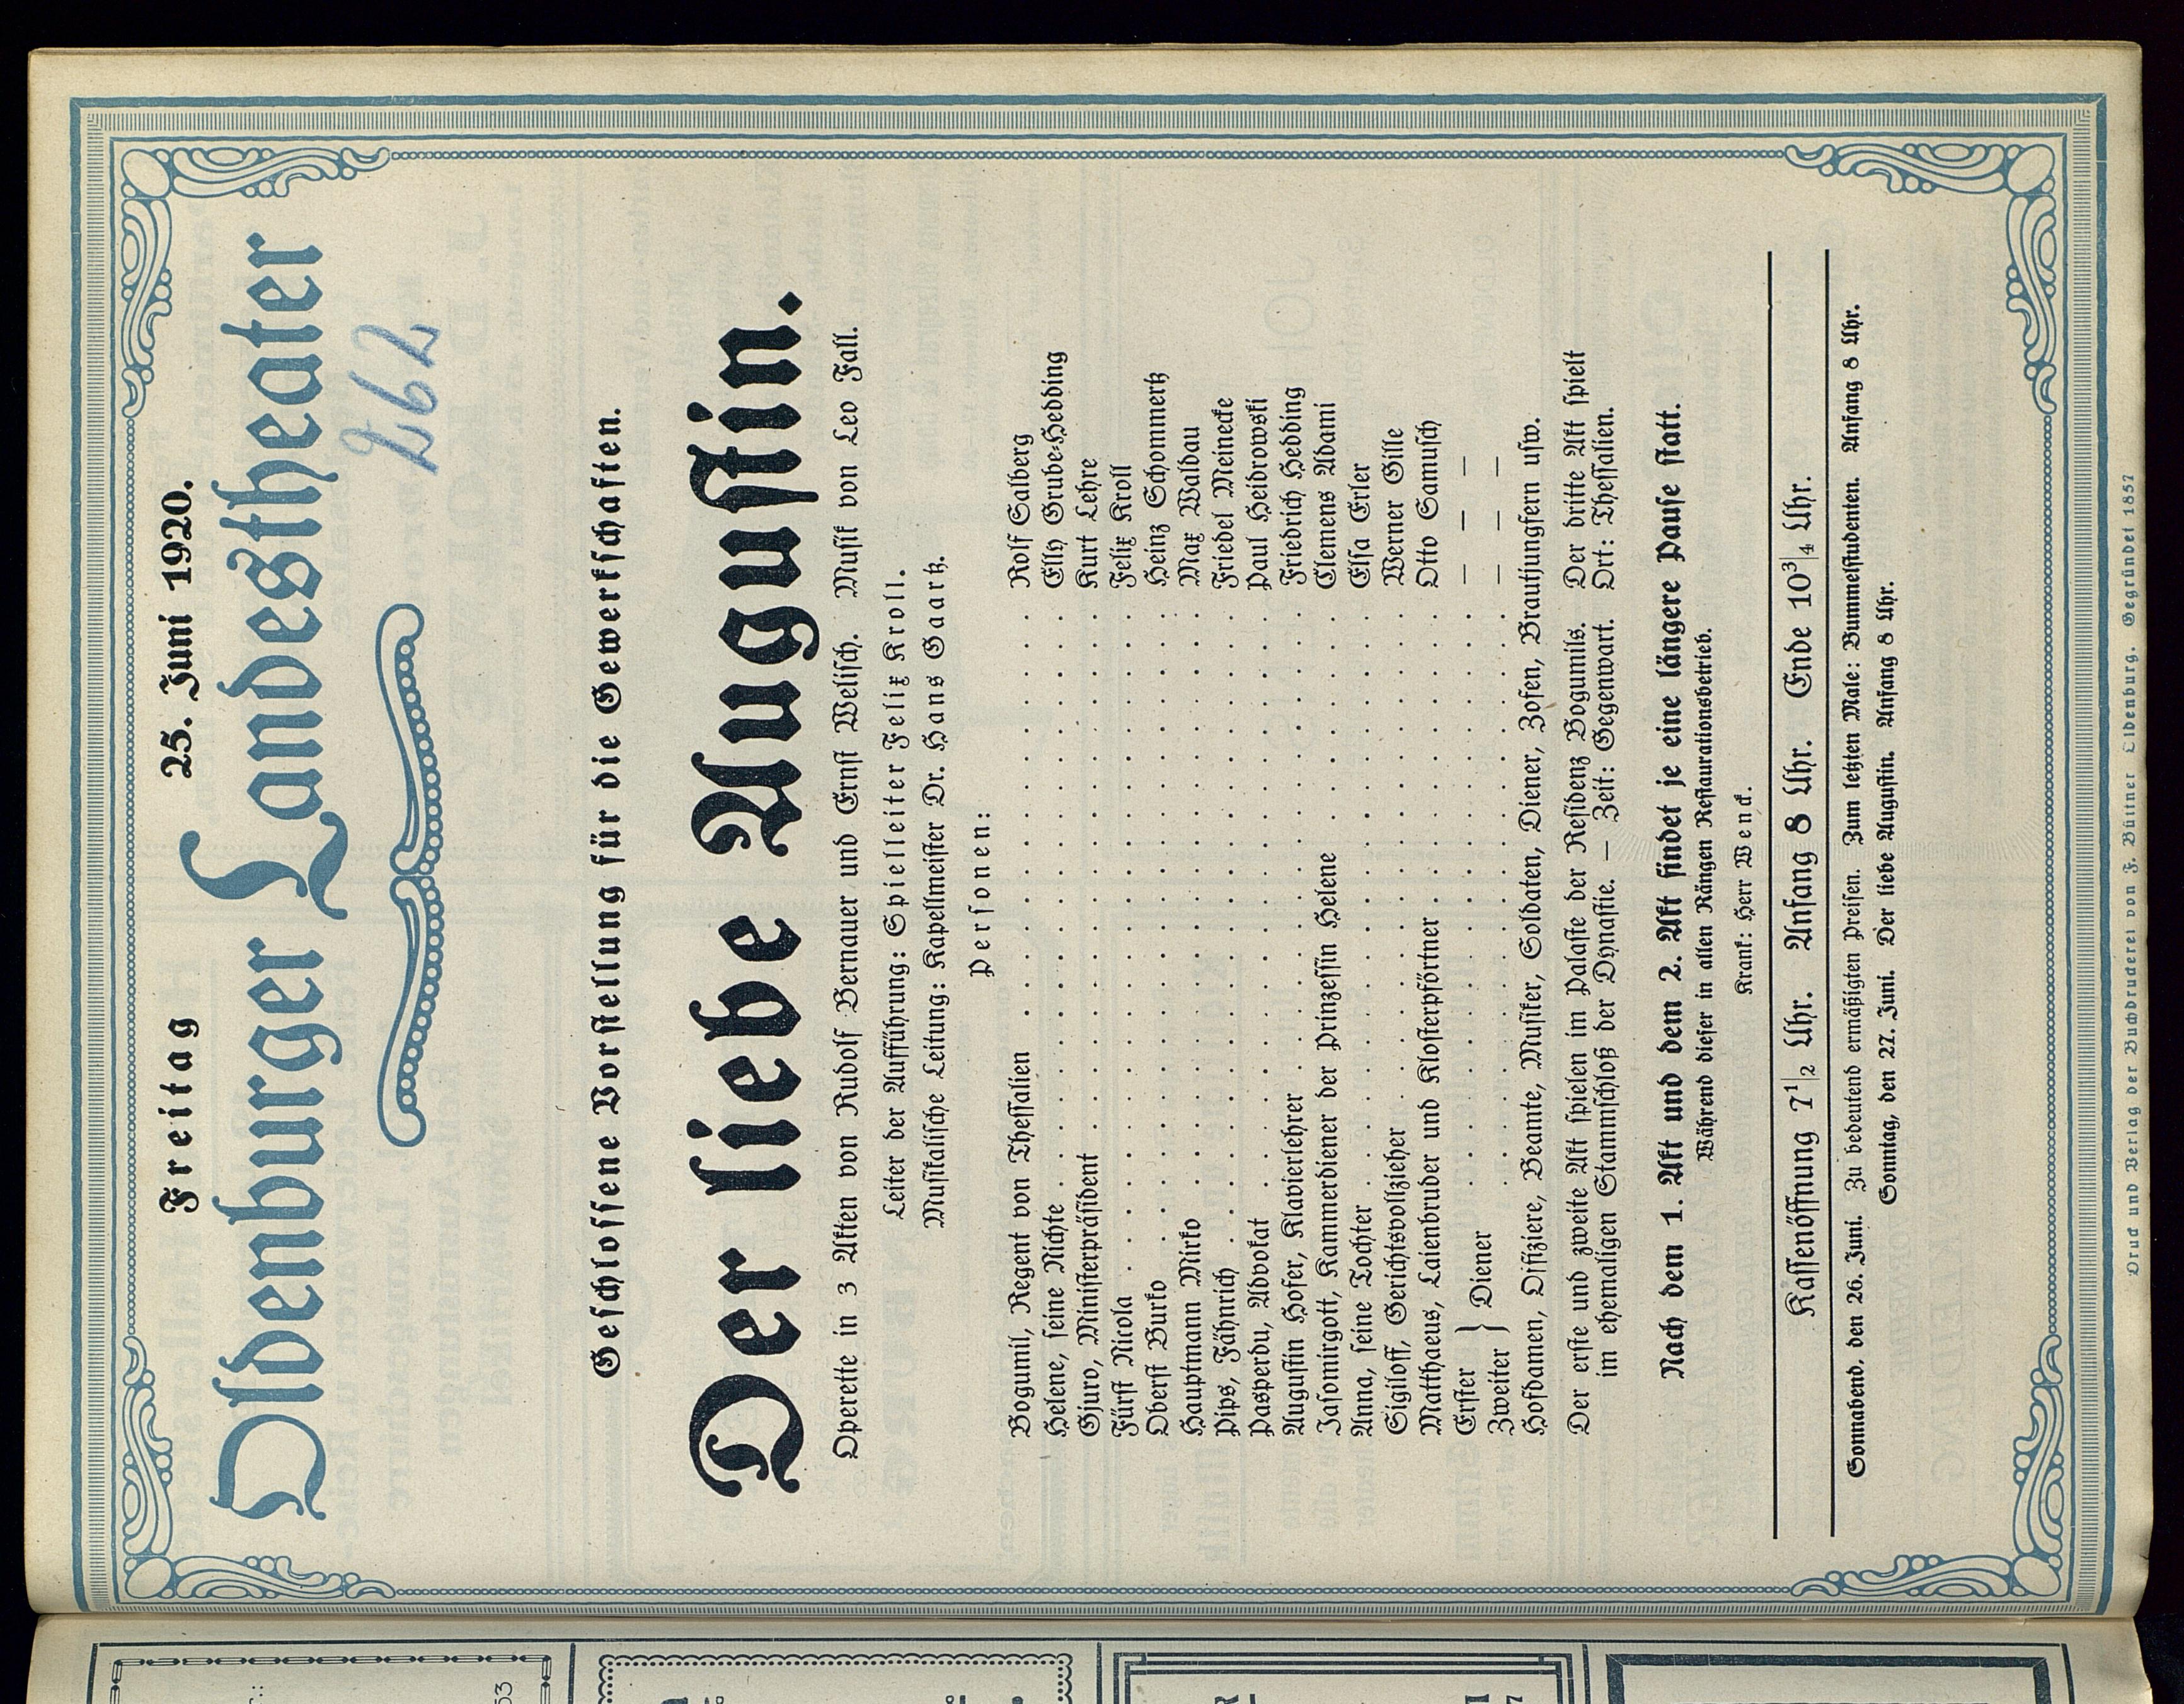 Freitag 25. Juni 1920.
Oldenburger Landestheater
262
Geschlossene Vorstellung für die Gewerkschaften.
Der liebe Augustin.
Operette in 3 Akten von Rudolf Bernauer und Ernst Welisch. Musik von Leo Fall.
Leiter der Aufführung: Spielleiter Felix Kroll.
Musikalische Leitung: Kapellmeister Dr. Hans Gaartz.
Personen:
Bogumil, Regent von Thessalien . . . . . . . . . . . . Rolf Salberg
Helene, seine Nichte . . . . . . . . . . . . Elly Grube-Hedding
Gjuro, Ministerpräsident . . . . . . . . . . . . Kurt Lehre
Fürst Nicola . . . . . . . . . . . . Felix Kroll
Oberst Burko . . . . . . . . . . . . Heinz Schommertz
Hauptmann Mirko . . . . . . . . . . . . Max Waldau
Pips, Fähnrich . . . . . . . . . . . . Friedel Meinecke
Pasperdu, Advokat . . . . . . . . . . . . Paul Heidrowski
Augustin Hofer, Klavierlehrer . . . . . . . . . . . . Friedrich Hedding
Jasomirgott, Kammerdiener der Prinzessin Helene . . . . . . . . Clemens Adami
Anna, seine Tochter . . . . . . . . . . . . Elsa Erler
Sigiloff, Gerichtsvollzieher . . . . . . . . . . . . Werner Gille
Matthaeus, Laienbruder und Klosterpförtner . . . . . . . . . Otto Samusch
Erster } Diener . . . . . . . . . . . . — — —
Zweiter } . . . . . . . . . . . . — — —
Hofdamen, Offiziere, Beamte, Musiker, Soldaten, Diener, Zofen, Brautjungfern usw.
Der erste und zweite Akt spielen im Palaste der Residenz Bogumils. Der dritte Akt spielt
im ehemaligen Stammschloß der Dynastie. — Zeit: Gegenwart. Ort: Thessalien.
Nach dem 1. Akt und dem 2. Akt findet je eine längere Pause statt.
Während dieser in allen Rängen Restaurationsbetrieb.
Krank: Herr Wenck.
Kassenöffnung 7 1/2 Uhr. Anfang 8 Uhr. Ende 10 3/4 Uhr.
Sonnabend, den 26. Juni. Zu bedeutend ermäßigten Preisen. Zum letzten Male: Bummelstudenten. Anfang 8 Uhr.
Sonntag, den 27. Juni. Der liebe Augustin. Anfang 8 Uhr.
Druck und Verlag der Buchdruckerei von F. Büttner Oldenburg. Gegründet 1857